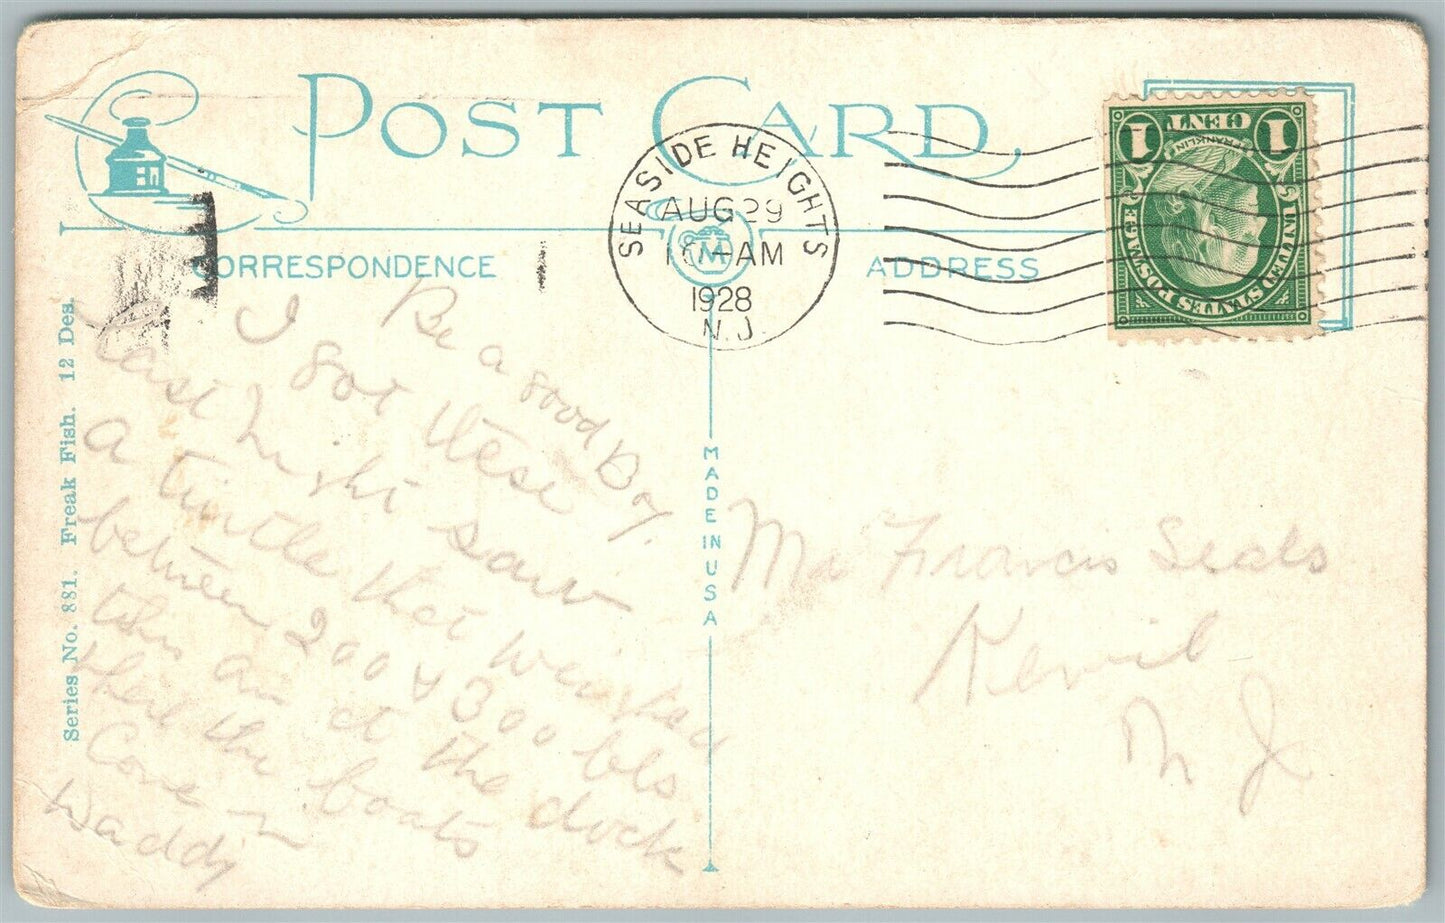 POST CARD.
CORRESPONDENCE
ADDRESS
SEASIDE HEIGHTS
AUG 29
AM
1928
N.J.
1 CENT 1
FRANKLIN
UNITED STATES POSTAGE
MADE IN USA
Series No. 881. Freak Fish. 12 Des.
Be a good Boy.
I got these
last night saw
A turtle that weighed
between 200 & 300 lbs
at the dock
the boats
Come in
Daddy
Mr Francis Seals
Kenvil
N J